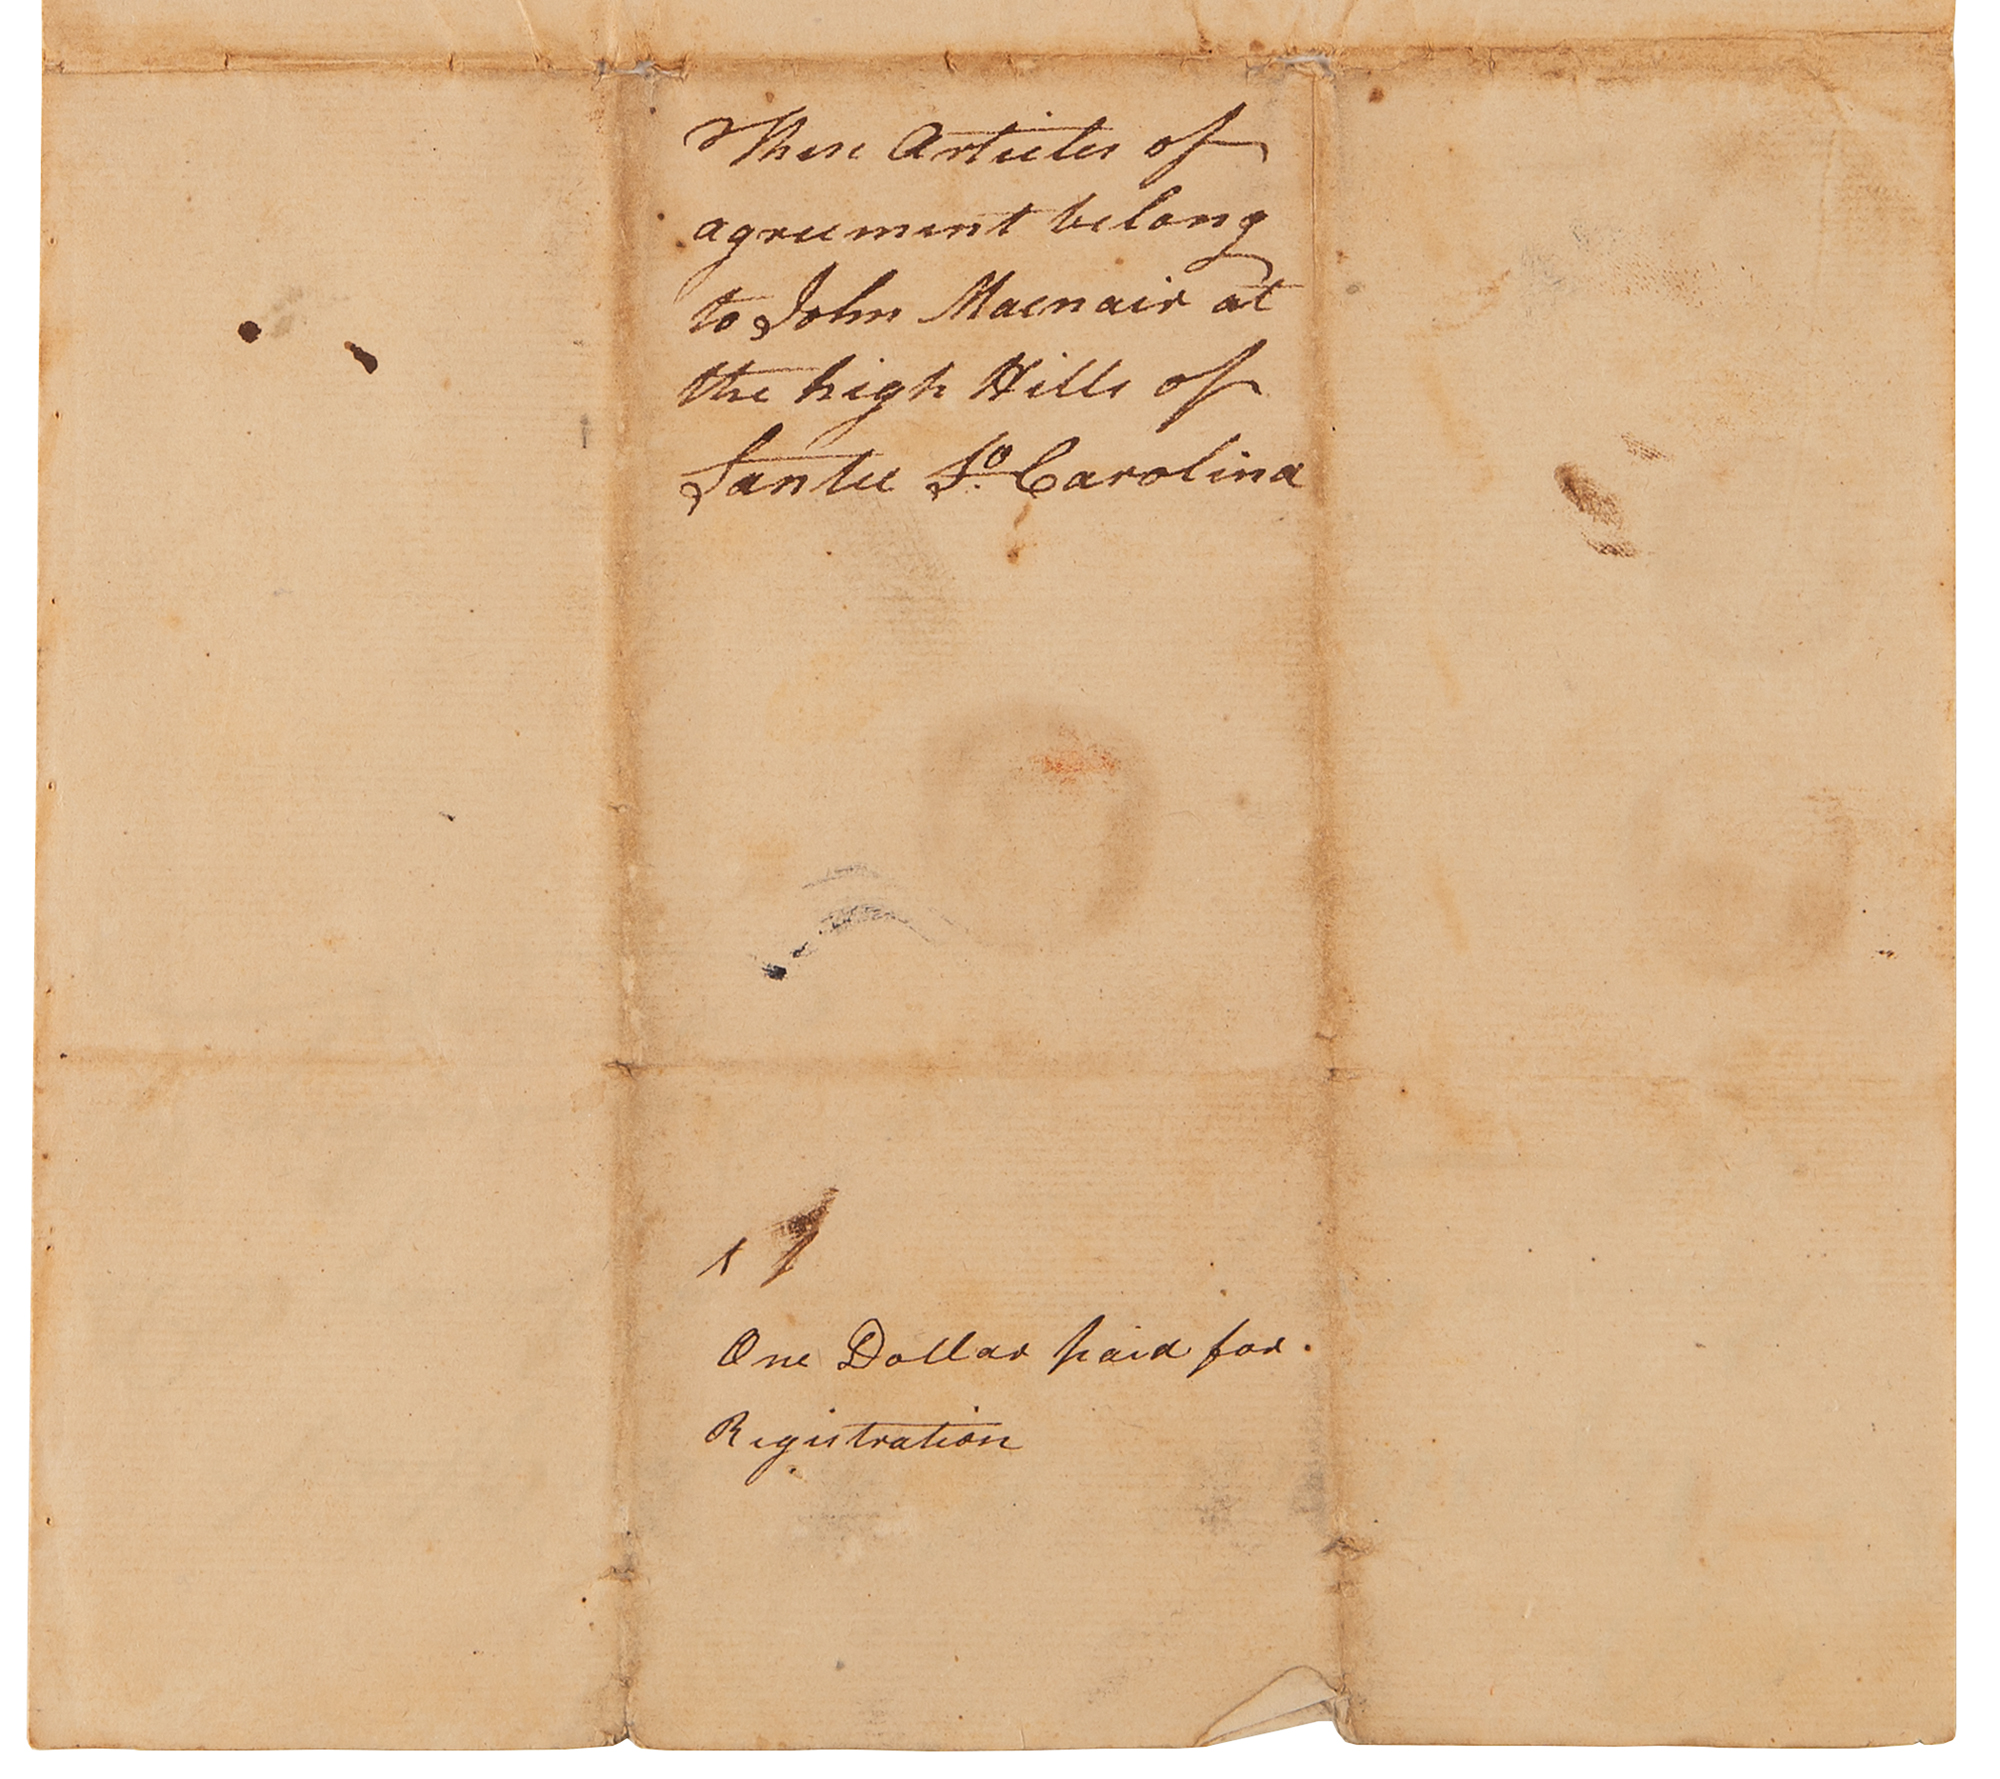 These Articles of
agreement belong
to John Macnair at
the high Hills of
Santee So. Carolina
One Dollar paid for.
Registration